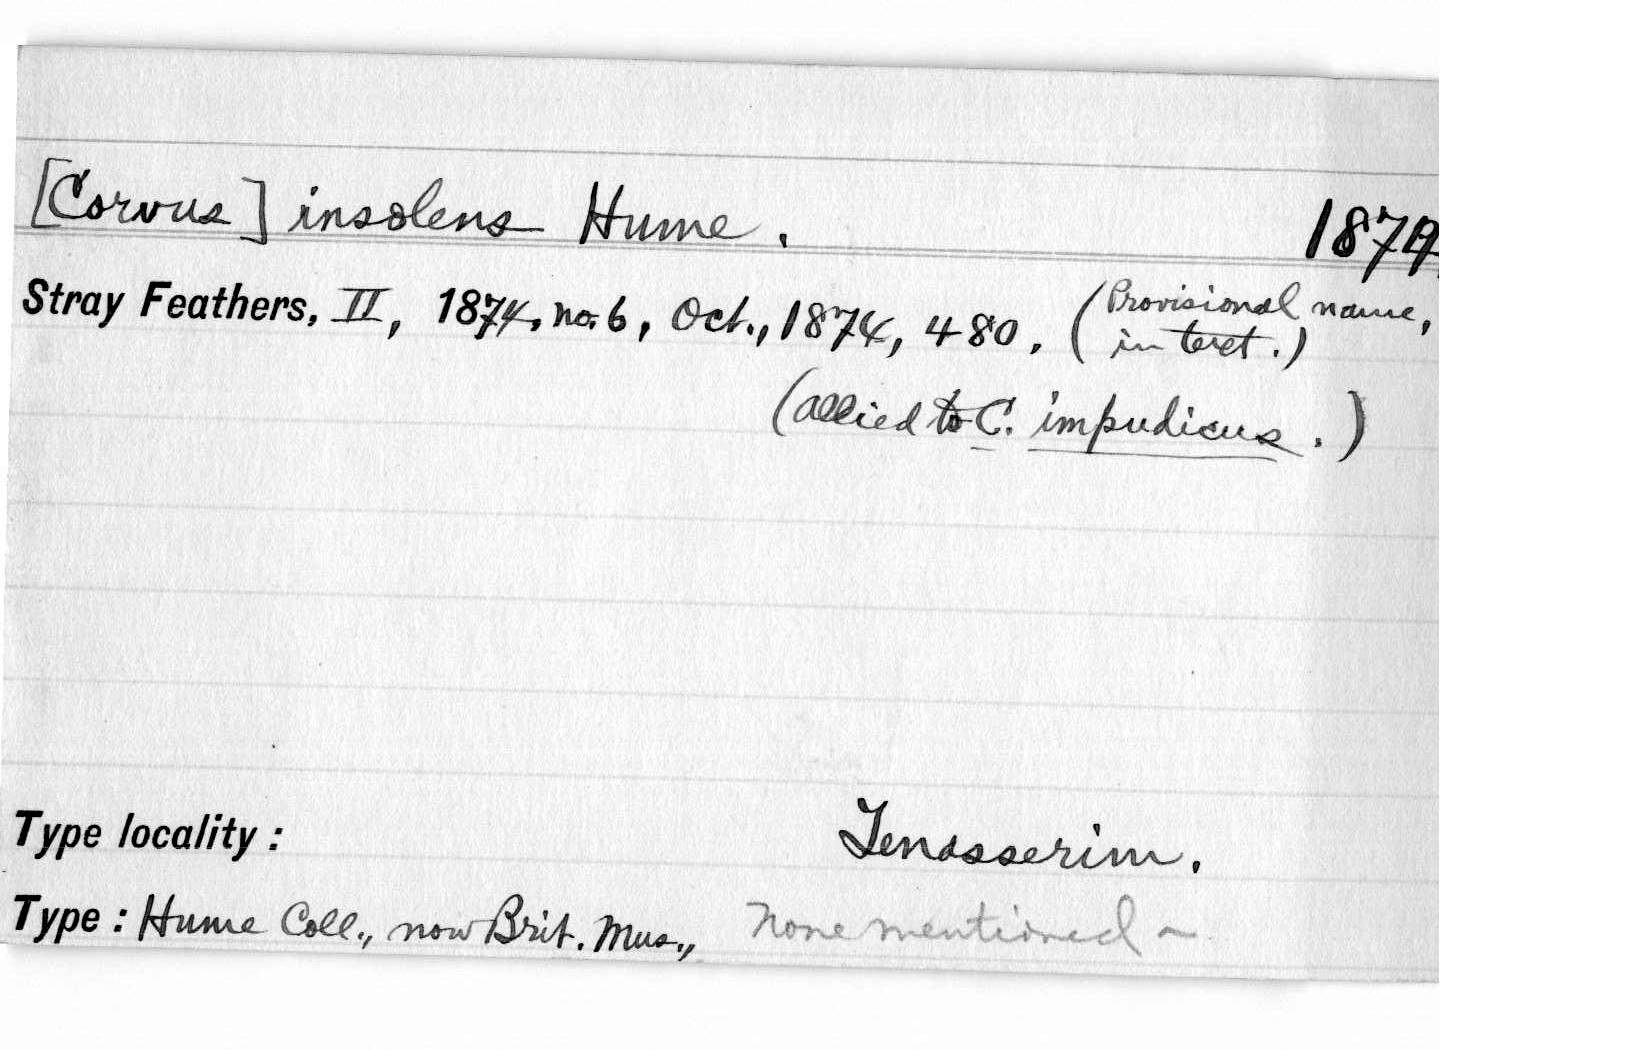 [Corvus] insolens Hume. 1874
Stray Feathers, II, 1874, no. 6, Oct., 1874, 480. (Provisional name,
in text.)
(allied to C. impudicus.)
Type locality: Tenasserim.
Type: Hume Coll., now Brit. Mus., None mentioned ~